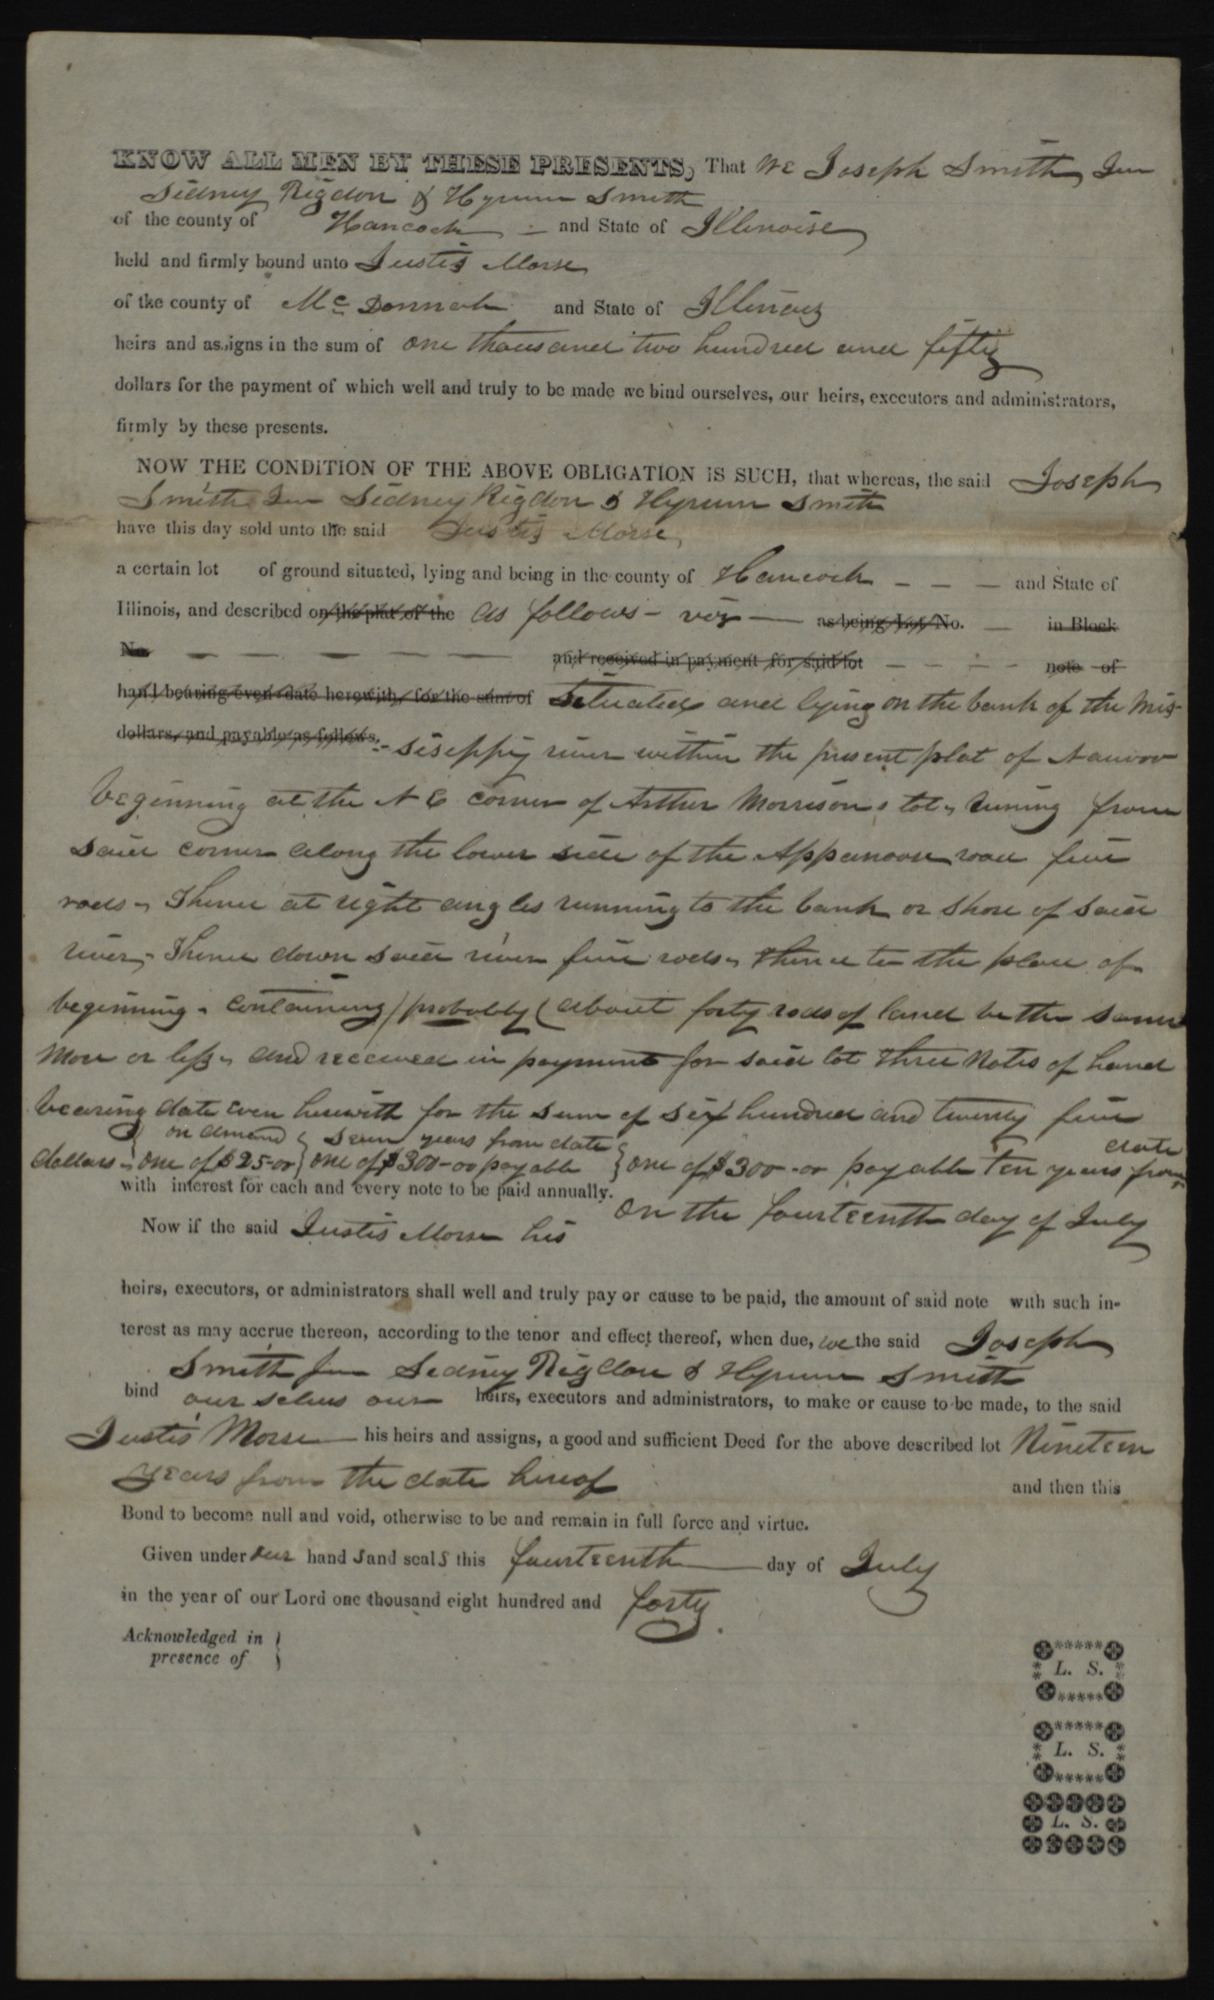 KNOW ALL MEN BY THESE PRESENTS, That We Joseph Smith Jun
Sidney Rigdon & Hyrum Smith
of the county of Hancock – and State of Illinoise
held and firmly bound unto Justis Morse
of the county of McDonnah and State of Illinois
heirs and assigns in the sum of one thousand two hundred and fifty
dollars for the payment of which well and truly to be made we bind ourselves, our heirs, executors and administrators,
firmly by these presents.
NOW THE CONDITION OF THE ABOVE OBLIGATION IS SUCH, that whereas, the said Joseph
Smith Jun Sidney Rigdon & Hyrum Smith
have this day sold unto the said Justis Morse,
a certain lot of ground situated, lying and being in the county of Hancock – – – and State of
Illinois, and described on the plat of the as follows – viz — as being Lot No. — in Block
No. — — — — — — and received in payment for said lot – – – – note of
hand bearing even date herewith, for the sum of Situated and lying on the bank of the Mis-
dollars, and payable as follows:
-siseppy river within the present plat of Nauvoo
beginning at the N E corner of Arther Morrisons lot, runing from
said corner along the lower side of the Appanoose road five
rods, Thence at right angles running to the bank or shore of said
river, Thence down said river five rods, thence to the place of
beginning. containing (probobly) about forty rods of land be the same
more or less, and received in payment for said lot three notes of hand
bearing date even herewith for the sum of six hundred and twenty five
on demand seven years from date date
dollars, one of $25-00 } one of $300-00 payable } one of $300-00 payable Ten years from
with interest for each and every note to be paid annually. on the fourteenth day of July
Now if the said Justis Morse his
heirs, executors, or administrators shall well and truly pay or cause to be paid, the amount of said note with such in-
terest as may accrue thereon, according to the tenor and effect thereof, when due, we the said Joseph
Smith Jun Sidney Rigdon & Hyrum Smith
bind our selves our heirs, executors and administrators, to make or cause to be made, to the said
Justis Morse his heirs and assigns, a good and sufficient Deed for the above described lot Nineteen
years from the date hereof and then this
Bond to become null and void, otherwise to be and remain in full force and virtue.
Given under our hands and seals this fourteenth day of July
in the year of our Lord one thousand eight hundred and forty.
Acknowledged in }
presence of }
L. S.
L. S.
L. S.